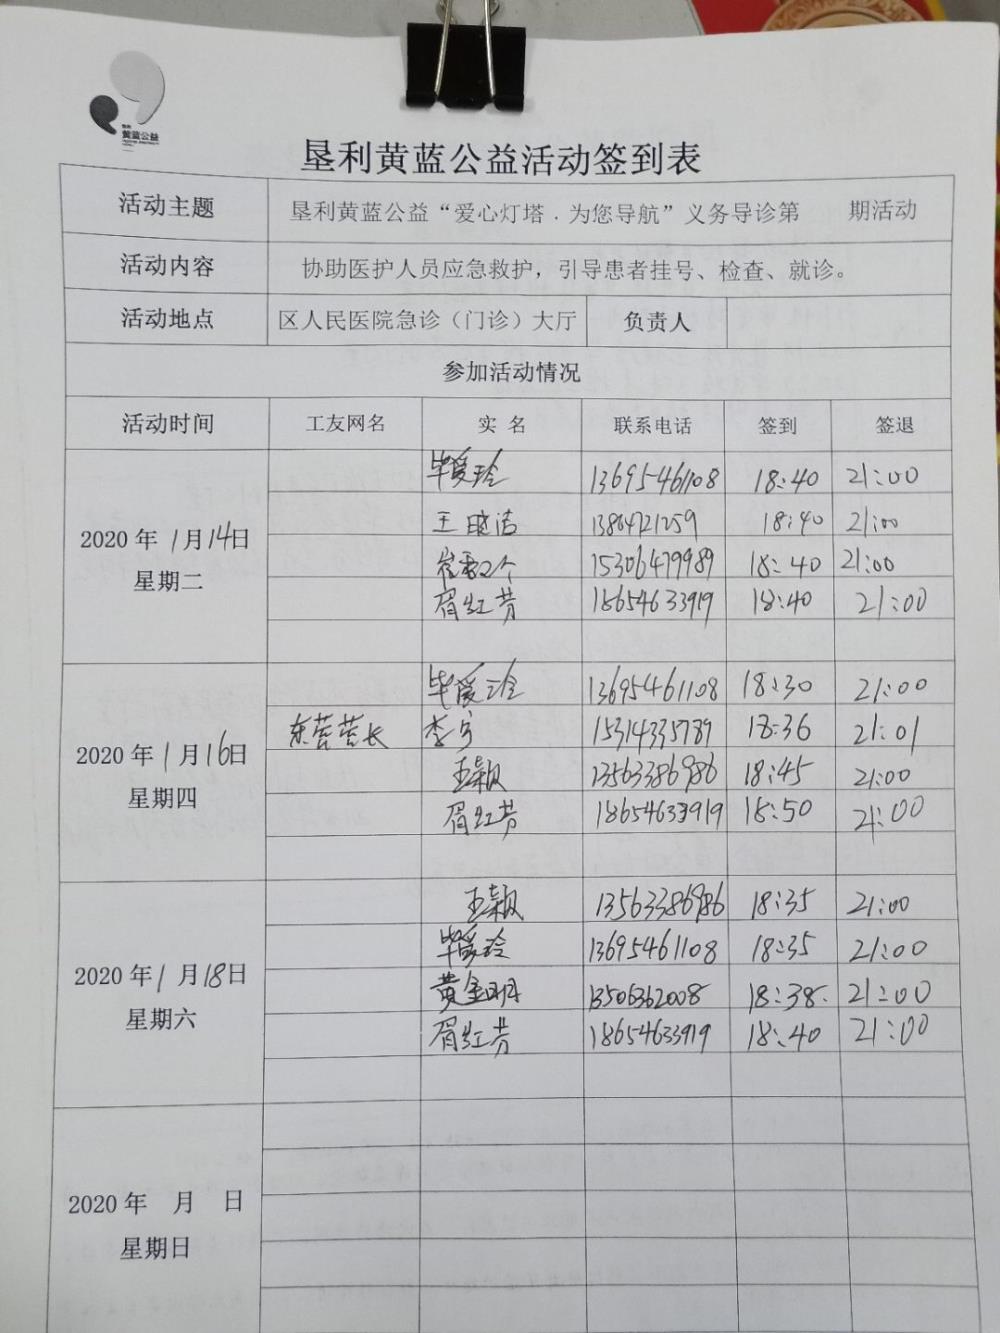 垦利
黄蓝公益
垦利黄蓝公益活动签到表
活动主题 垦利黄蓝公益“爱心灯塔．为您导航”义务导诊第 期活动
活动内容 协助医护人员应急救护，引导患者挂号、检查、就诊。
活动地点 区人民医院急诊（门诊）大厅 负责人
参加活动情况
活动时间 工友网名 实 名 联系电话 签到 签退
2020 年 1 月 14 日 星期二
毕爱玲 13695461108 18:40 21:00
王晓洁 13864721259 18:40 21:00
15306479989 18:40 21:00
眉红芳 18654633919 18:40 21:00
2020 年 1 月 16 日 星期四
毕爱玲 13695461108 18:30 21:00
东营营长 李宁 15314335789 18:36 21:01
王颖 13563386986 18:45 21:00
眉红芳 18654633919 18:50 21:00
2020 年 1 月 18 日 星期六
王颖 13563386986 18:35 21:00
毕爱玲 13695461108 18:35 21:00
黄金明 13506362008 18:38. 21:00
眉红芳 18654633919 18:40 21:00
2020 年 月 日
星期日